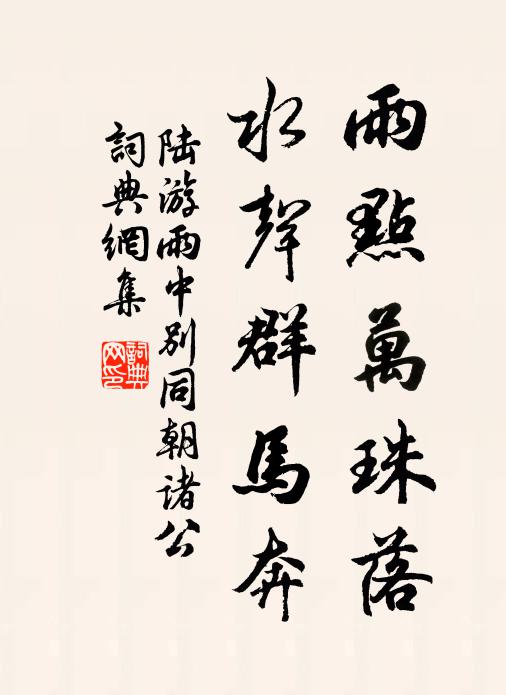 雨點萬珠落
水聲群馬奔
陸游雨中別同朝諸公
詞典網集
詞典网印